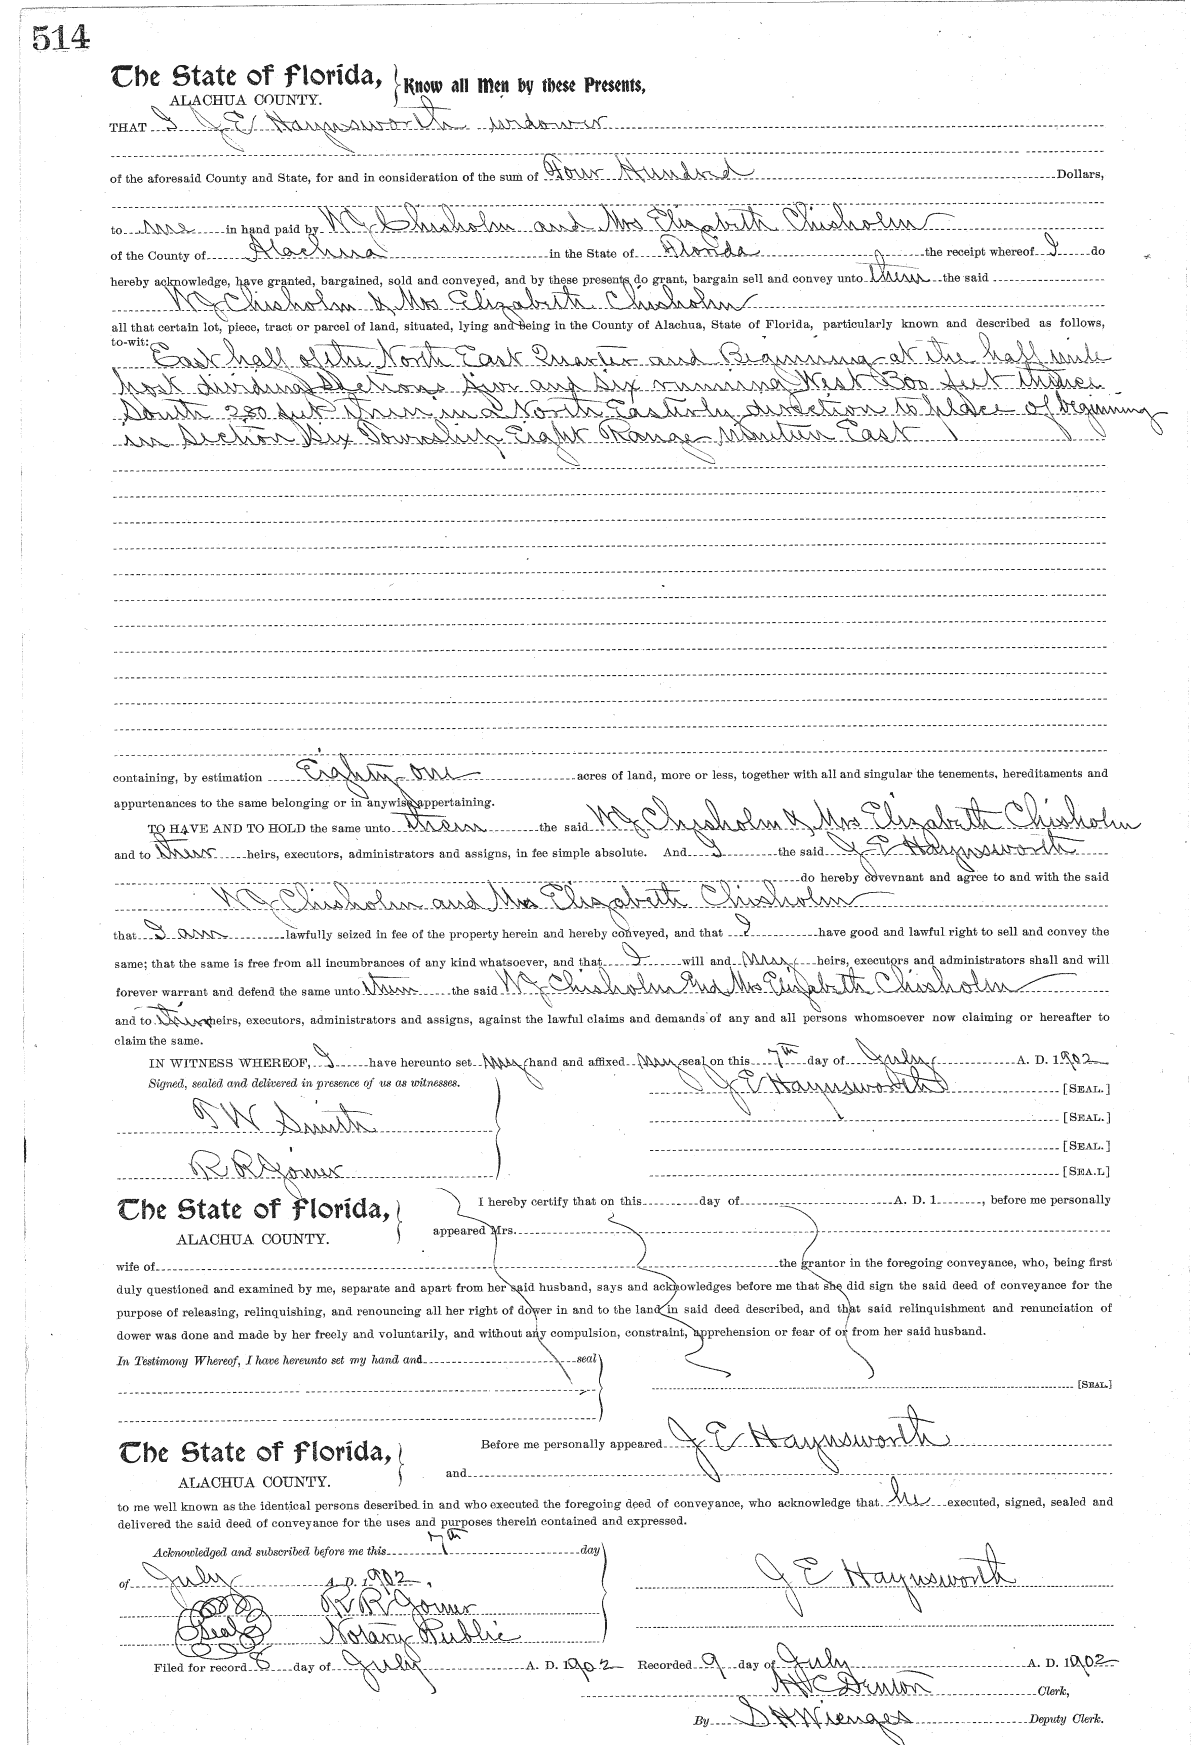 514
The State of Florida, Know all Men by these Presents,
ALACHUA COUNTY.
THAT I J E Haynsworth widower
of the aforesaid County and State, for and in consideration of the sum of Four Hundred Dollars,
to me in hand paid by W J Chisholm and Mrs Elizabeth Chisholm
of the County of Alachua in the State of Florida the receipt whereof I do
hereby acknowledge, have granted, bargained, sold and conveyed, and by these presents do grant, bargain sell and convey unto them the said
W J Chisholm & Mrs Elizabeth Chisholm
all that certain lot, piece, tract or parcel of land, situated, lying and being in the County of Alachua, State of Florida, particularly known and described as follows,
to-wit:
East half of the North East Quarter and Beginning at the half mile
post dividing Sections five and six running West 300 feet thence
South 280 feet then in a North Easterly direction to place of beginning
in Section Six Township Eight Range Nineteen East
containing, by estimation Eighty one acres of land, more or less, together with all and singular the tenements, hereditaments and
appurtenances to the same belonging or in anywise appertaining.
TO HAVE AND TO HOLD the same unto them the said W J Chisholm & Mrs Elizabeth Chisholm
and to their heirs, executors, administrators and assigns, in fee simple absolute. And I the said J E Haynsworth
do hereby covevnant and agree to and with the said
W J Chisholm and Mrs Elizabeth Chisholm
that I am lawfully seized in fee of the property herein and hereby conveyed, and that I have good and lawful right to sell and convey the
same; that the same is free from all incumbrances of any kind whatsoever, and that I will and my heirs, executors and administrators shall and will
forever warrant and defend the same unto them the said W J Chisholm and Mrs Elizabeth Chisholm
and to their heirs, executors, administrators and assigns, against the lawful claims and demands of any and all persons whomsoever now claiming or hereafter to
claim the same.
IN WITNESS WHEREOF, I have hereunto set my hand and affixed my seal on this 7th day of July A. D. 1902
Signed, sealed and delivered in presence of us as witnesses. J E Haynsworth [SEAL.]
[SEAL.]
T W Smith
[SEAL.]
R R Gomer [SEA.L]
The State of Florida, I hereby certify that on this day of A. D. 1 , before me personally
ALACHUA COUNTY. appeared Mrs.
wife of the grantor in the foregoing conveyance, who, being first
duly questioned and examined by me, separate and apart from her said husband, says and acknowledges before me that she did sign the said deed of conveyance for the
purpose of releasing, relinquishing, and renouncing all her right of dower in and to the land in said deed described, and that said relinquishment and renunciation of
dower was done and made by her freely and voluntarily, and without any compulsion, constraint, apprehension or fear of or from her said husband.
In Testimony Whereof, I have hereunto set my hand and seal
[SEAL.]
The State of Florida, Before me personally appeared J E Haynsworth
ALACHUA COUNTY. and
to me well known as the identical persons described in and who executed the foregoing deed of conveyance, who acknowledge that he executed, signed, sealed and
delivered the said deed of conveyance for the uses and purposes therein contained and expressed.
Acknowledged and subscribed before me this 7th day
of July A. D. 1902, J E Haynsworth
R R Gomer
Seal Notary Public
Filed for record 8 day of July A. D. 1902 Recorded 9 day of July A. D. 1902
H C Denton Clerk,
By S H Wienges Deputy Clerk.